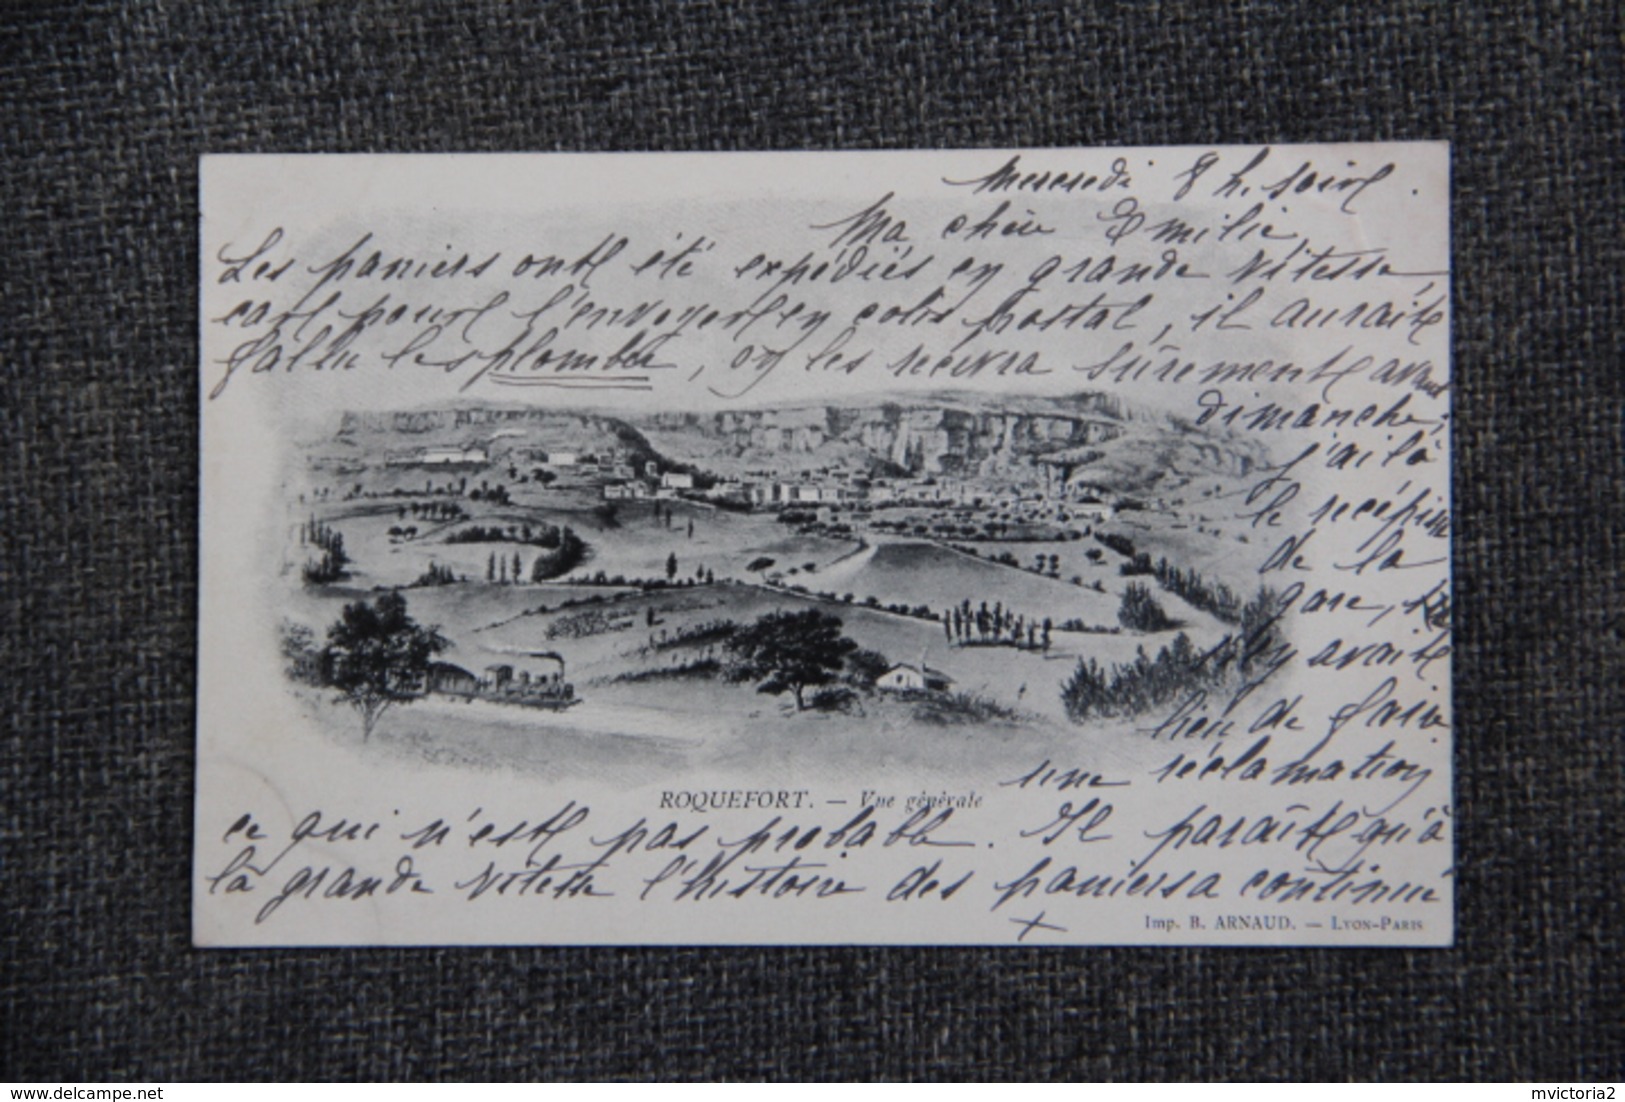 Mercredi 8 h. soir.
Ma chère Emilie,
Les paniers ont été expédiés en grande vitesse,
car pour l'envoyer en colis postal, il aurait
fallu les plomber, on les recevra sûrement avant
dimanche,
j'ai là
le récépissé
de la
gare, s'il
y avait
lieu de faire
une réclamation
ROQUEFORT. — Vue générale
ce qui n'est pas probable. Il paraît qu'à
la grande vitesse l'histoire des paniers a continué
Imp. B. ARNAUD. — LYON-PARIS
http://www.delcampe.net
mvictoria2